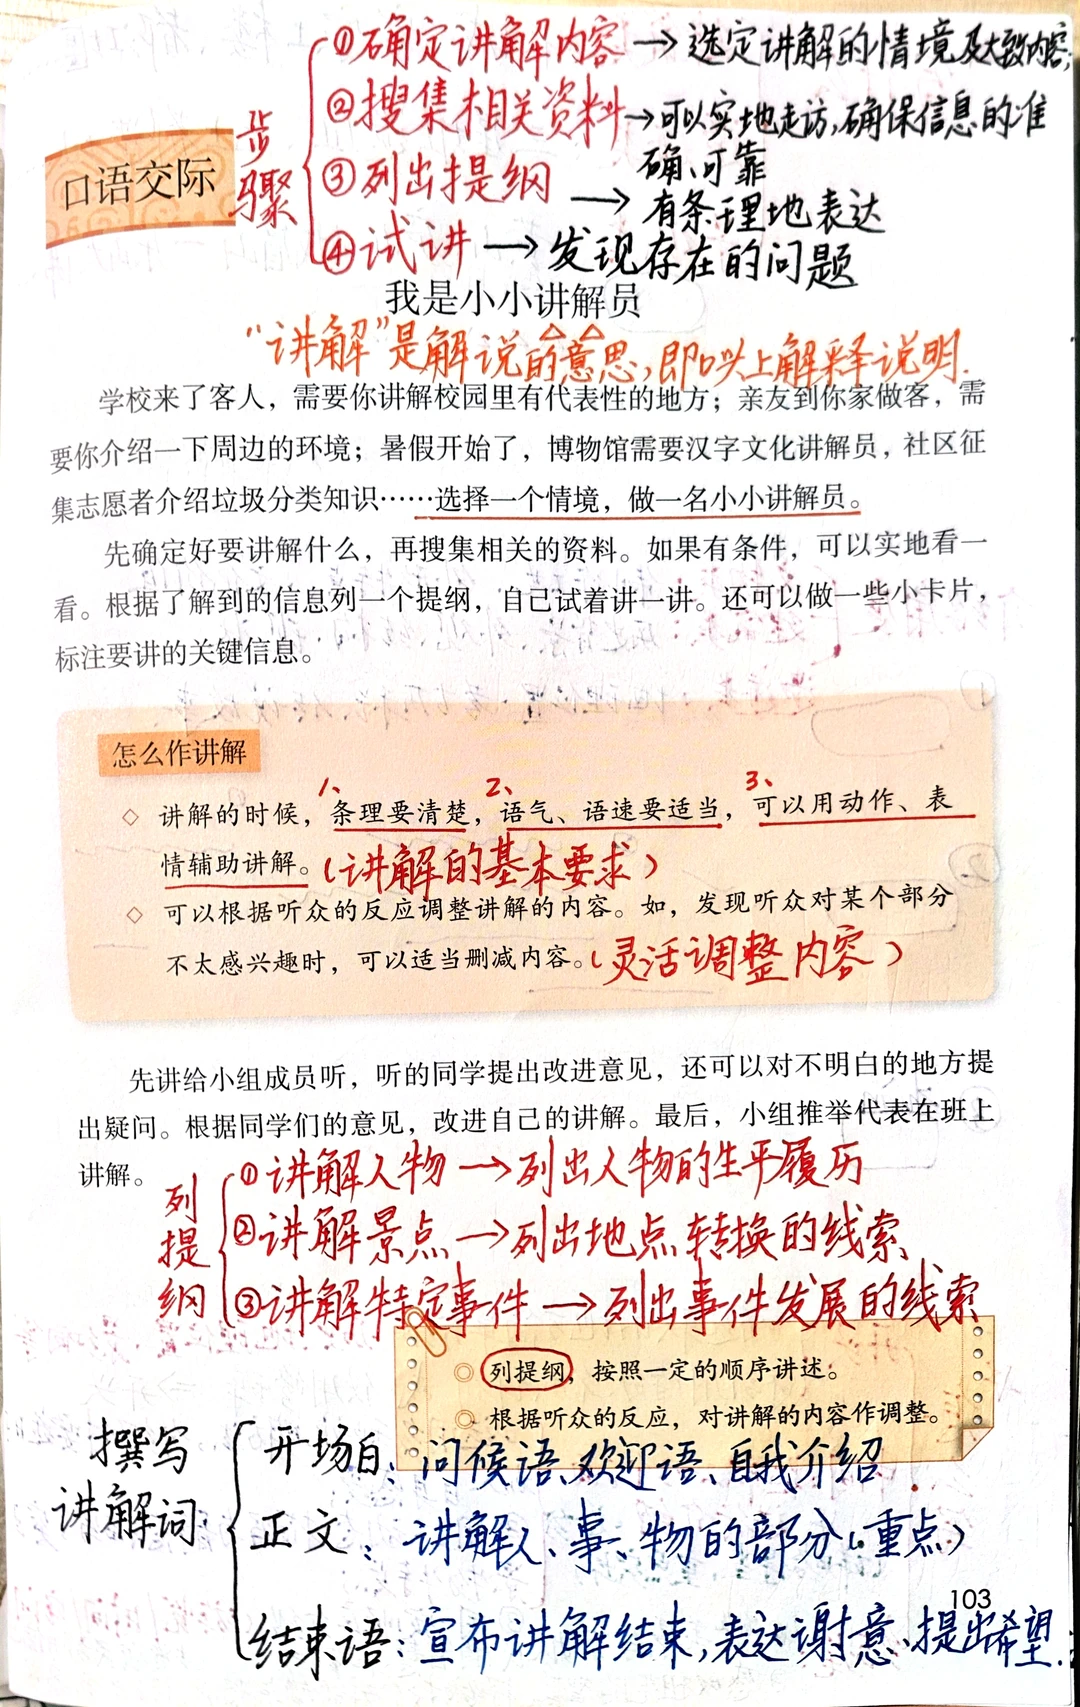 ①确定讲解内容→选定讲解的情境及大致内容;
②搜集相关资料→可以实地走访,确保信息的准
确、可靠
步骤
口语交际
③列出提纲→有条理地表达
④试讲→发现存在的问题
我是小小讲解员
“讲解”是解说的意思,即口头上解释说明.
学校来了客人，需要你讲解校园里有代表性的地方；亲友到你家做客，需
要你介绍一下周边的环境；暑假开始了，博物馆需要汉字文化讲解员，社区征
集志愿者介绍垃圾分类知识……选择一个情境，做一名小小讲解员。
先确定好要讲解什么，再搜集相关的资料。如果有条件，可以实地看一
看。根据了解到的信息列一个提纲，自己试着讲一讲。还可以做一些小卡片，
标注要讲的关键信息。
怎么作讲解
1、 2、 3、
◇ 讲解的时候，条理要清楚，语气、语速要适当，可以用动作、表
情辅助讲解。(讲解的基本要求)
◇ 可以根据听众的反应调整讲解的内容。如，发现听众对某个部分
不太感兴趣时，可以适当删减内容。(灵活调整内容)
先讲给小组成员听，听的同学提出改进意见，还可以对不明白的地方提
出疑问。根据同学们的意见，改进自己的讲解。最后，小组推举代表在班上
讲解。
列提纲
①讲解人物→列出人物的生平履历
②讲解景点→列出地点转换的线索
③讲解特定事件→列出事件发展的线索
◎ 列提纲，按照一定的顺序讲述。
◎ 根据听众的反应，对讲解的内容作调整。
撰写
讲解词
开场白:问候语、欢迎语、自我介绍
正文:讲解人、事、物的部分(重点)
103
结束语:宣布讲解结束,表达谢意、提出希望.